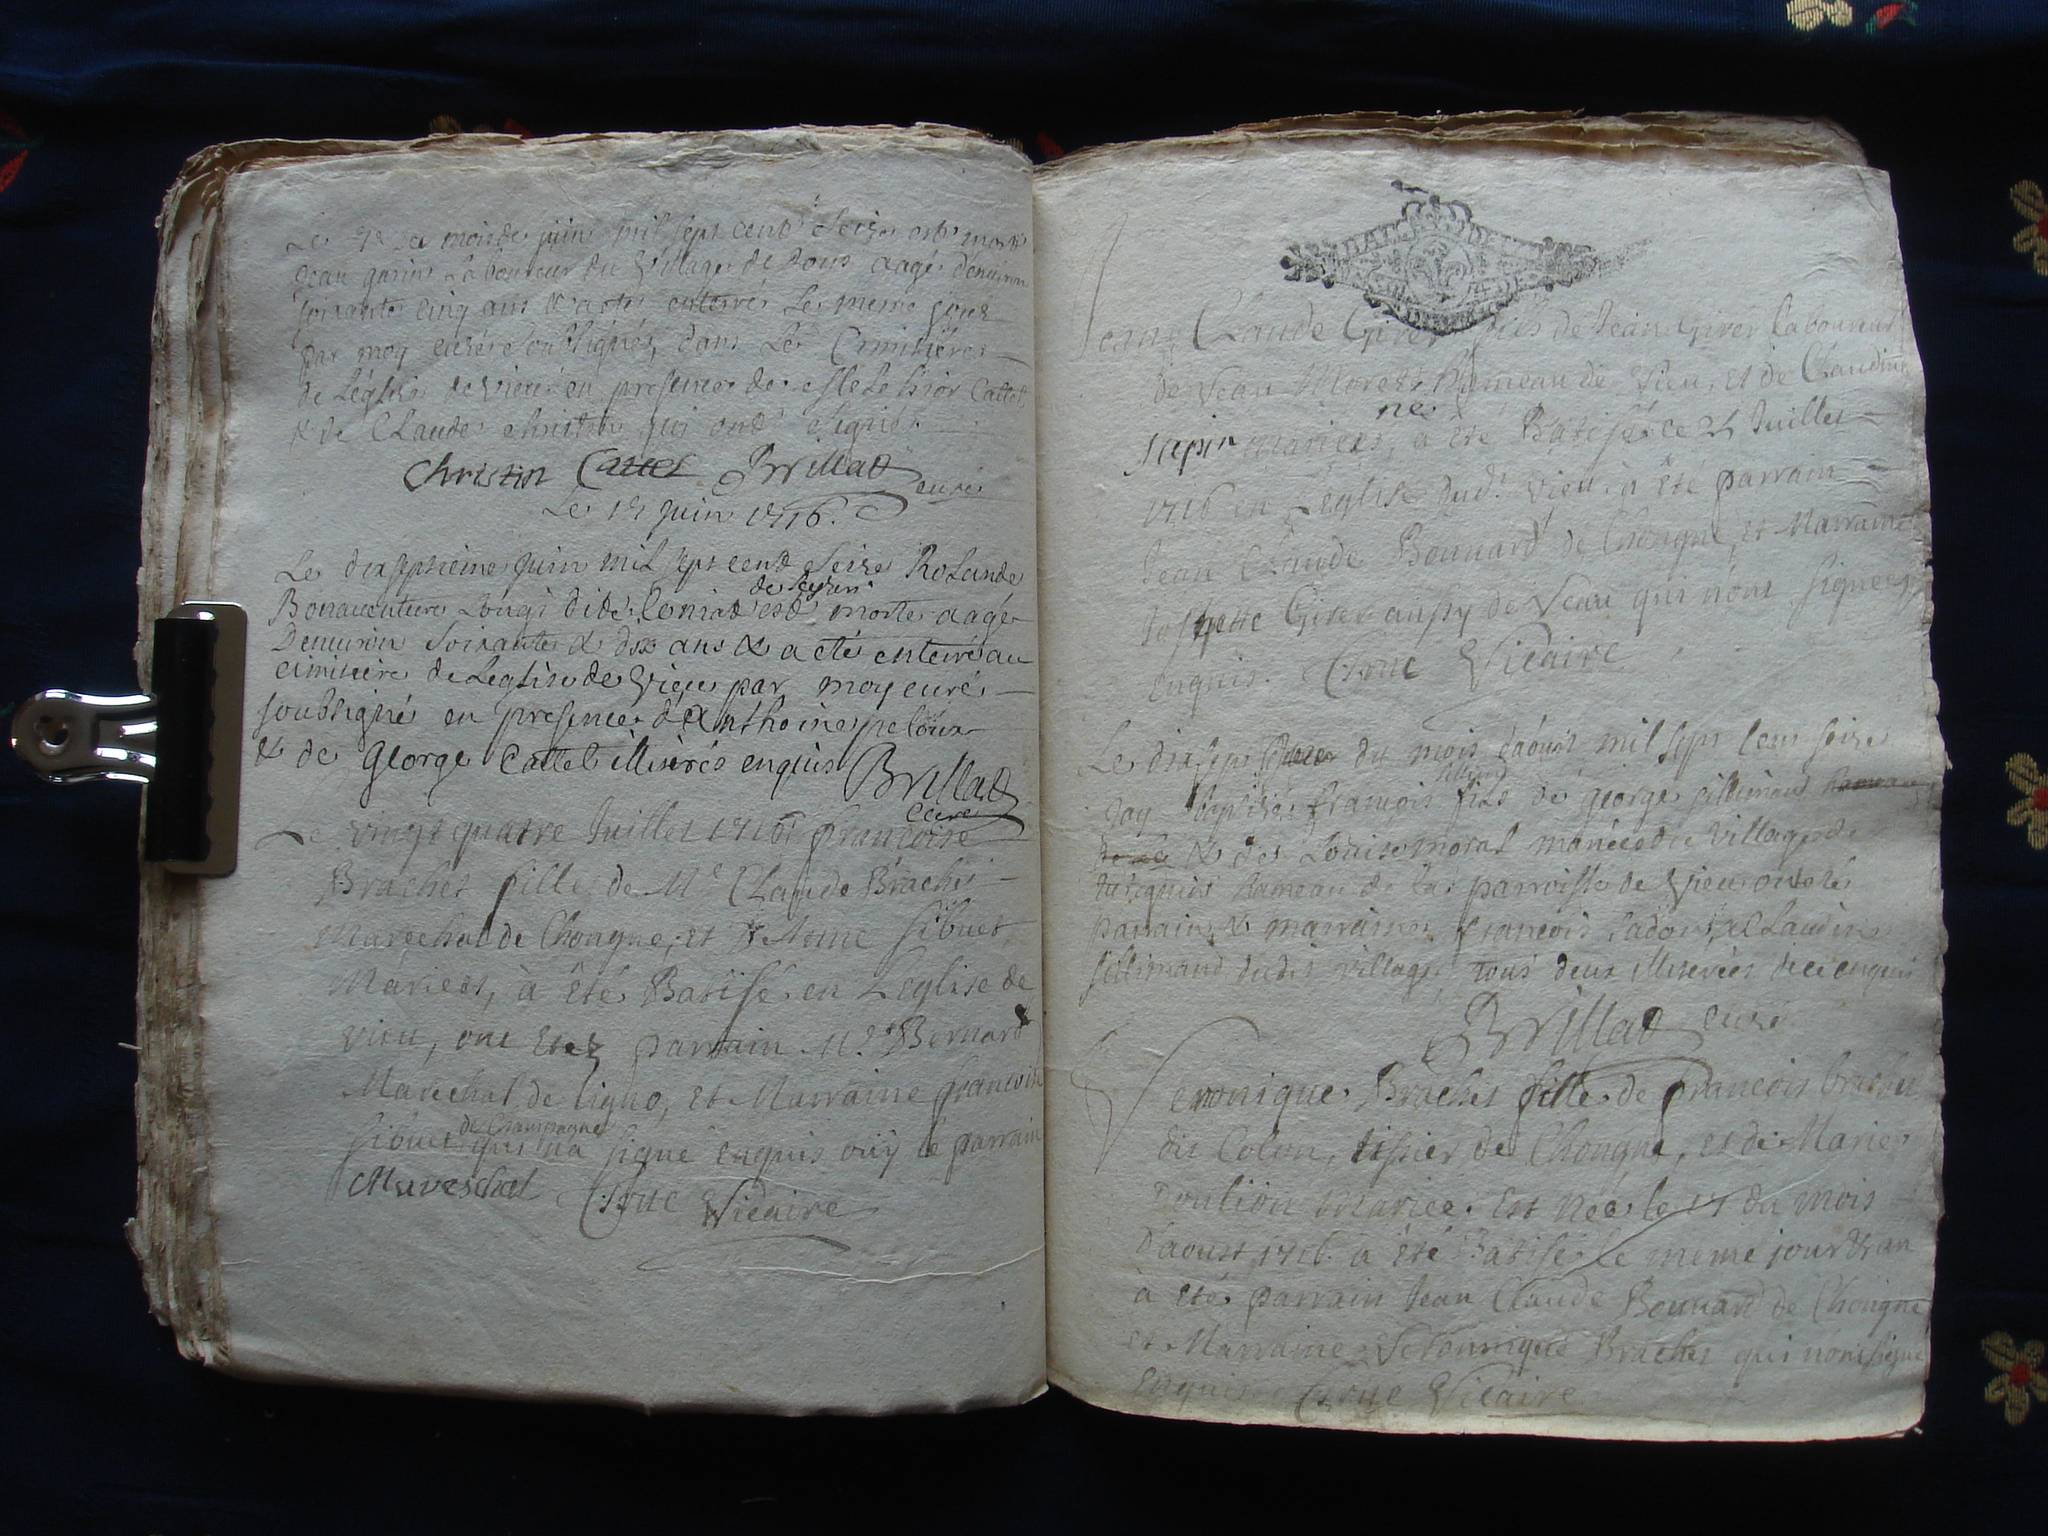 Le 17 du mois de juin mil sept cent seize est mort
Jean garin Laboureur du village de dons aagé d'environ
soixante cinq ans & a eté enterré Le meme jour
par moy curé soubsigné, dans Le Cimitiere
de L'église de vieu en presence de Cattel
& de CLaude christin qui ont signé.
Christin Cattel Brillat curé
Le 17 juin 1716.
Le dixseptieme juin mil sept cent seize RoLande
Bonaventure Longi dite est morte aagé
Denviron soixante & dix ans & a eté enterré au
cimitiere de Leglise de vieu par moy curé
soubsigné en presence d'Anthoine peloux
& de George Cattel illiterés enquis Brillat
Curé
Le vingt quatre Juillet 1716 francoise
Brachet fille de Mr CLaude Brachet
Maréchal de Chongne, et Sibuet
Mariees, à été Batisé en Leglise de
vieu, ont etez parrain Mr Bernard
Marechal de Ligno, et Marraine francoise
de Champagne
sibuet qui n'a signé enquis ouy le parrain
Mareschal Vicaire
Jean Claude Giver fils de Jean Giver Laboureur
de Veau hameau de vieu, et de Claudine
ne
mariees, à été Batisé ce 24 Juillet
1716 en Leglise dudt vieu à été parrain
Jean Claude Bonnard de Chongne, et Marraine
Josphette Giver aussy de Veau qui nont signees
Enquis. Vicaire
Le dixsept du mois d'aoust mil sept cent seize
jay baptisé francois fils de george sillimand
& de Louise moral mariés du village de
hameau de la parroisse de vieu ont eté
parrain & marraine francois & Claudine
sillimand dudit village, tous deux illiterées de ce enquis
Brillat curé
Veronique Brachet fille de francois brachet
dit Colon, tissier de Chongne, et de Marie
mariee. Est née le 17 du mois
D'aoust 1716 a été Batisé le meme jour & an
à eté parrain Jean Claude Bonnard de Chongne
et Marraine Veronnique Brachet qui n'ont signe
Enquis Vicaire